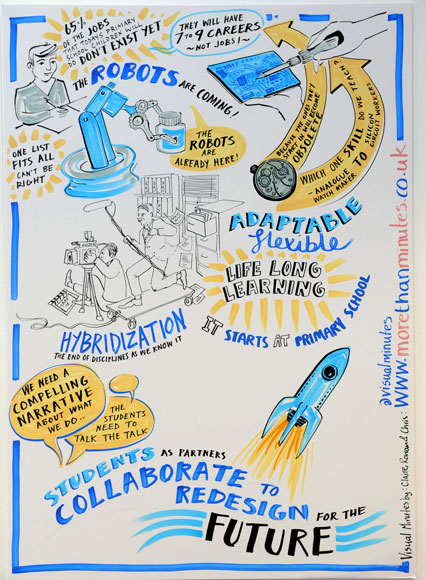 65%
OF THE JOBS
THAT TODAYS PRIMARY
SCHOOL CHILDREN WILL
DO DON'T EXIST YET
THEY WILL HAVE
7 TO 9 CAREERS
~ NOT JOBS! ~
THE ROBOTS ARE COMING!
THE
ROBOTS
ARE
ALREADY HERE!
ONE LIST
FITS ALL
CAN'T BE
RIGHT
BECAUSE THE ONES THEY
START WITH WILL BECOME
OBSOLETE
WHICH ONE SKILL DO WE TEACH?
~ ANALOGUE TO SILICON
WATCH MAKER CIRCUIT WORKERS
ADAPTABLE
flexible
LIFE LONG
LEARNING
IT STARTS AT PRIMARY SCHOOL
HYBRIDIZATION
THE END OF DISCIPLINES AS WE KNOW IT
WE NEED A
COMPELLING
NARRATIVE
ABOUT WHAT
WE DO...
THE
STUDENTS
NEED TO
TALK THE TALK
STUDENTS AS PARTNERS
COLLABORATE TO
REDESIGN FOR THE
FUTURE
@visualminutes
www.morethanminutes.co.uk
Visual Minutes by: Claire, Rowan and Chris: